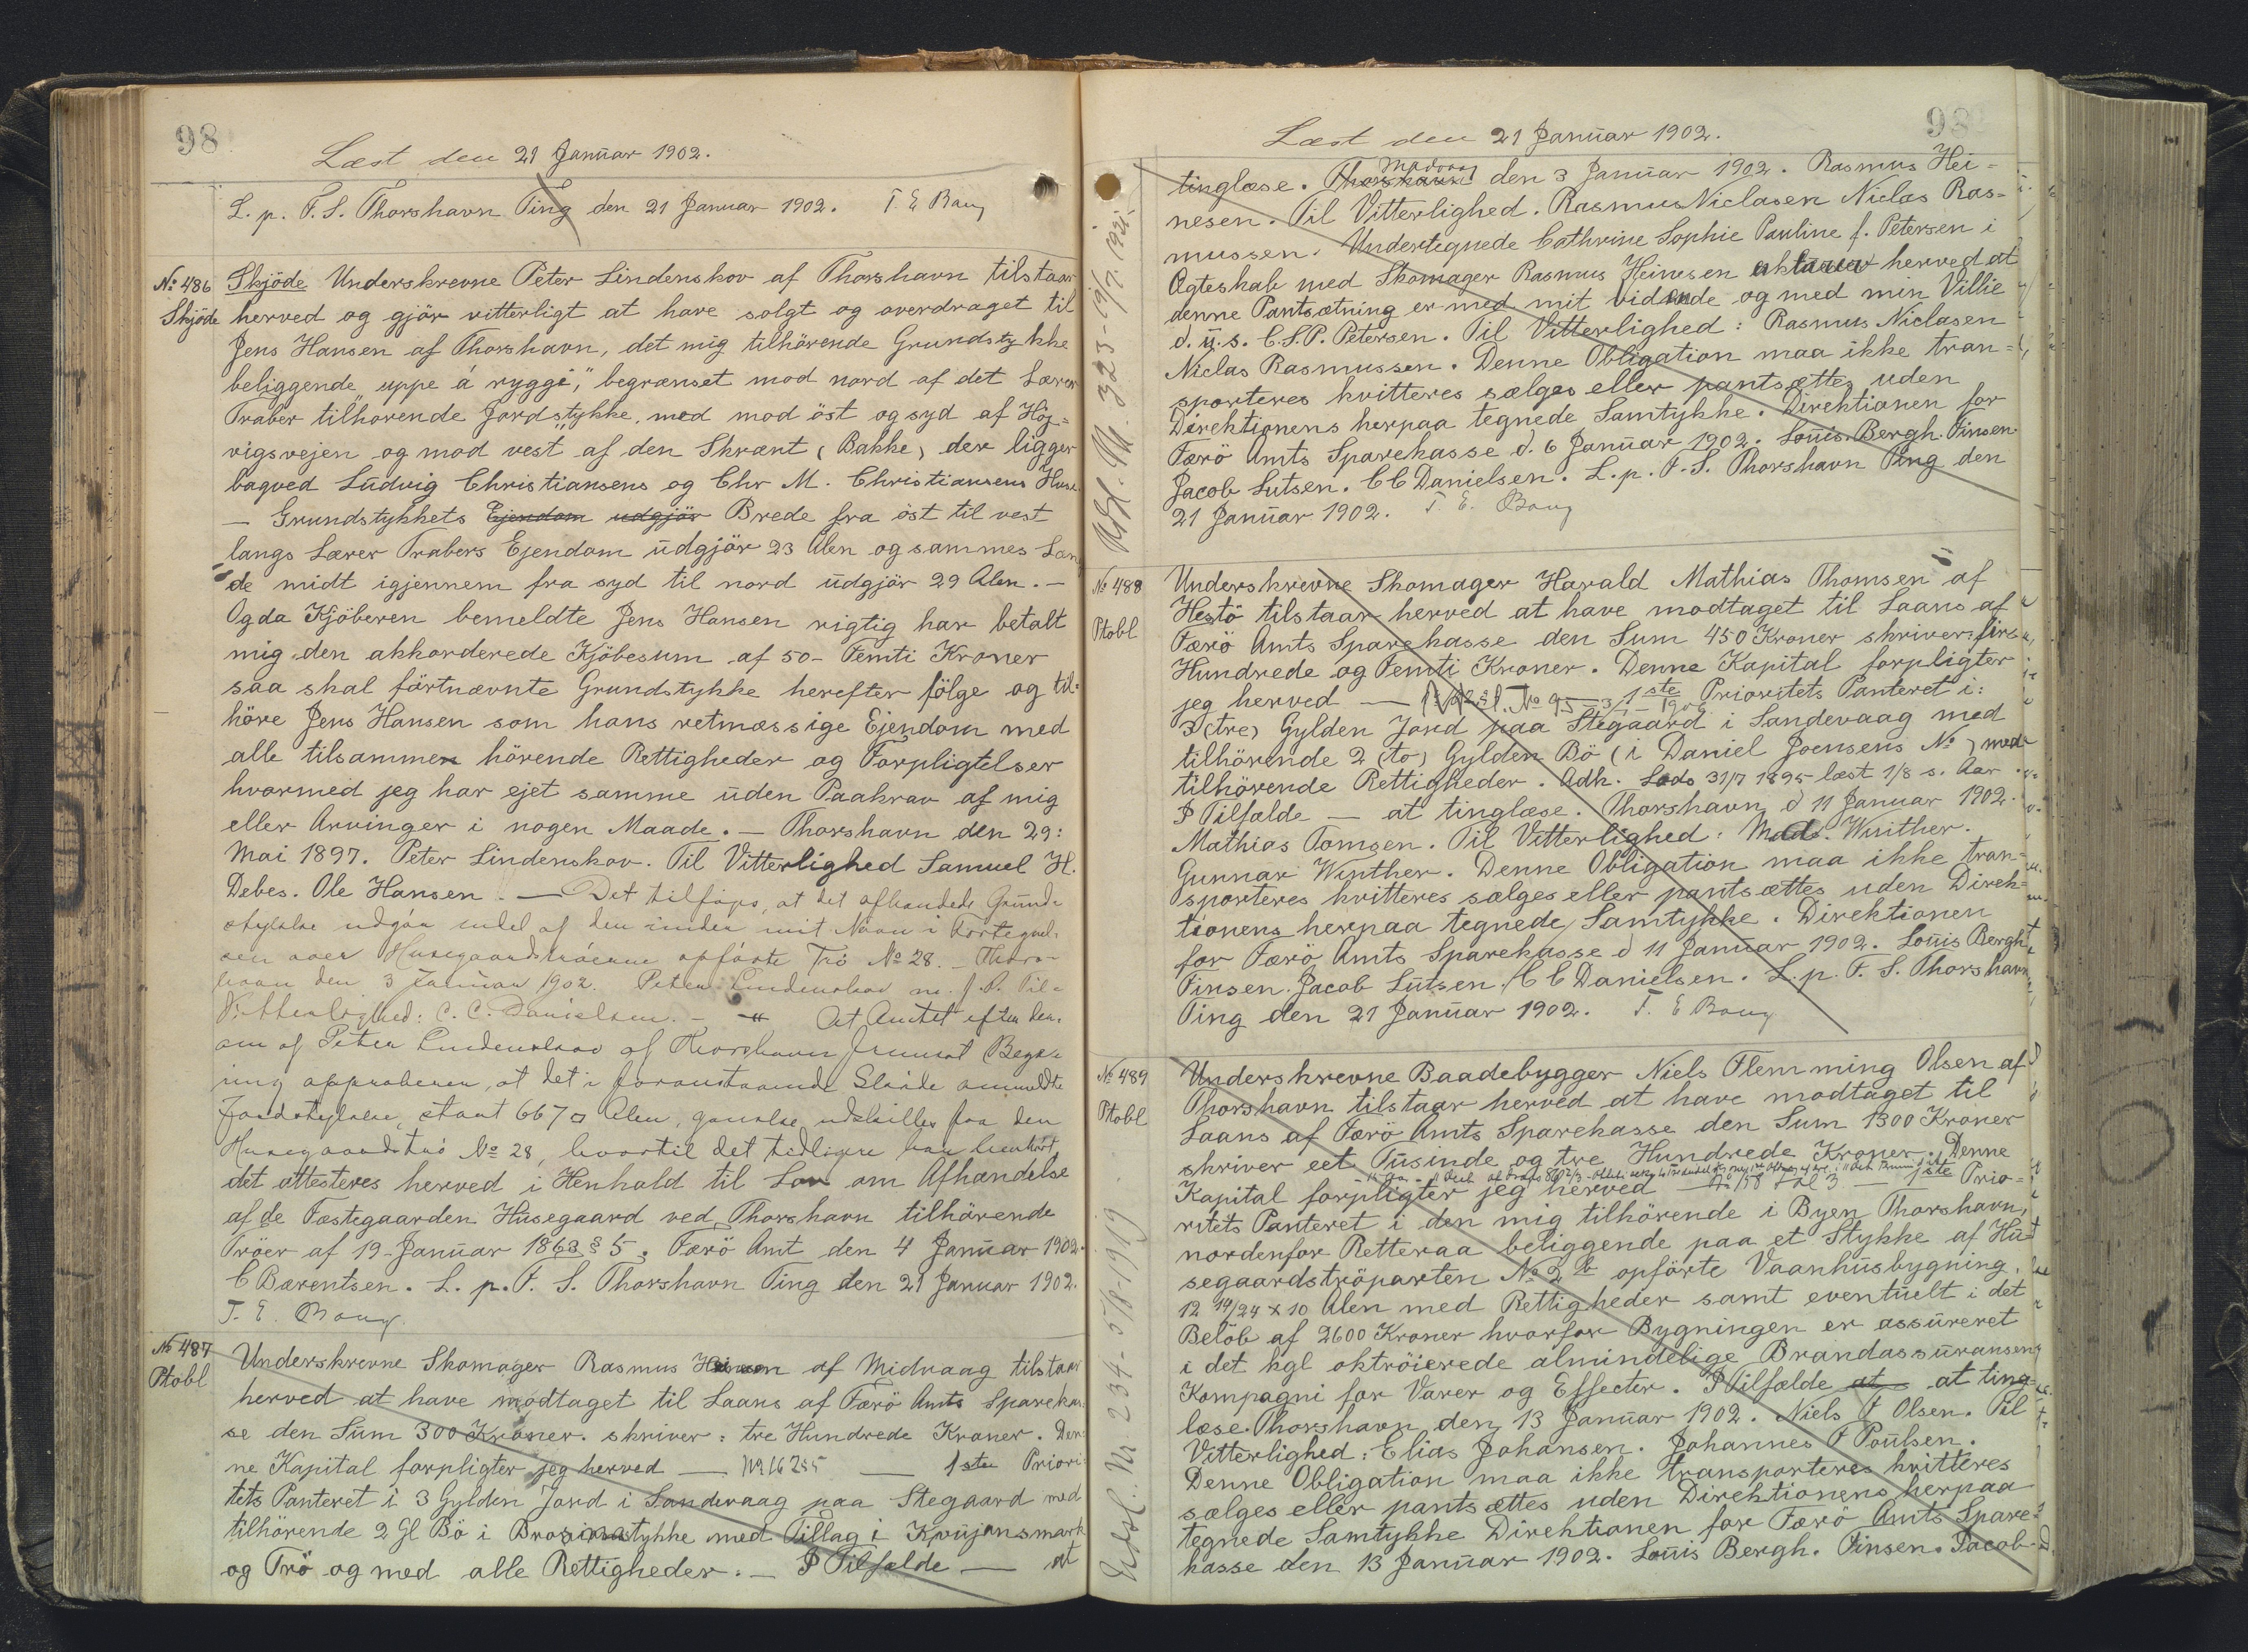 98
Læst den 21 Januar 1902.
L. p. F. S. Thorshavn Ting den 21 Januar 1902. T. E Bang
№ 486
Skjöde
Skjöde Underskrevne Peter Lindenskov af Thorshavn tilstaar
herved og gjör vitterligt at have solgt og overdraget til
Jens Hansen af Thorshavn, det mig tilhörende Grundstykke
beliggende "uppe á ryggi," begrænset mod nord af det Lærer
Traber tilhörende Jordstykke, med mod öst og syd af Höj=
vigsvejen og mod vest af den Skrænt (Bakke) der ligger
bagved Ludvig Christiansens og Chr M. Christiansens Huse.
— Grundstykkets Ejendom udgjör Brede fra öst til vest
langs Lærer Trabers Ejendom udgjör 23 Alen og sammes Læng
de midt igjennem fra syd til nord udgjör 29 Alen. —
Og da Kjöberen bemeldte Jens Hansen rigtig har betalt
mig den akkorderede Kjöbesum af 50 - Femti Kroner
saa skal förtnævnte Grundstykke herefter fölge og til=
höre Jens Hansen som hans retmæssige Ejendom med
alle tilsammen hörende Rettigheder og Forpligtelser
hvormed jeg har ejet samme uden Paakrav af mig
eller Arvinger i nogen Maade. — Thorshavn den 29:
Mai 1897. Peter Lindenskov. Til Vitterlighed Samuel H.
Debes. Ole Hansen. — Det tilföjes, at det afhændede Grund=
stykke udgör endel af den under mit Navn i Fortegnel=
sen over Husegaardströerne opförte Trö № 28. — Thors=
havn den 3 Januar 1902. Peter Lindenskov m. f. P. Til=
Vitterlighed: C. C. Danielsen. — At Amtet efter der=
om af Peter Lindenskov af Thorshavn fremsat Begæ=
ring approberer, at det i foranstaaende Skøde ommeldte
Jordstykke, stort 667 □ Alen, ganske udskilles fra den
Husegaardströ № 28, hvortil det tidligere har henhört
det attesteres herved i Henhold til Lov om Afhændelse
af de Fæstegaarden Husegaard ved Thorshavn tilhörende
Tröer af 19 - Januar 1863 § 5. Færö Amt den 4 Januar 1902.
C Bærentsen. L. p. F. S. Thorshavn Ting den 21 Januar 1902.
T. E. Bang.
№ 487
Ptobl
Underskrevne Skomager Rasmus Heinesen af Midvaag tilstaar
herved at have modtaget til Laans af Færö Amts Sparekas
se den Sum 300 Kroner. skriver: tre Hundrede Kroner. Den
ne Kapital forpligter jeg herved — — 1ste Priori
tets Panteret i 3 Gylden Jord i Sandevaag paa Stegaard med
tilhörende 2 Gl Bö i Brosinastykke med Tillag i Kpujansmark
og Trö og med alle Rettigheder. — I Tilfælde — at
98
Læst den 21 Januar 1902.
tinglæse. Thorshavn Midvaag den 3 Januar 1902. Rasmus Hei=
nesen. Til Vitterlighed. Rasmus Niclasen Niclas Ras=
mussen. Undertegnede Cathrine Sophie Pauline f. Petersen i
Ægteskab med Skomager Rasmus Heinesen erklærer herved at
denne Pantsætning er med mit vidende og med min Villie
d. u. s. C. S. P. Petersen. Til Vitterlighed: Rasmus Niclasen
Niclas Rasmussen. Denne Obligation maa ikke tran=
sporteres kvitteres sælges eller pantsættes uden
Direktionens herpaa tegnede Samtykke. Direktionen for
Færö Amts Sparekasse d. 6 Januar 1902. Louis Bergh. Finsen.
Jacob Lutsen. C C Danielsen. L. p. F. S. Thorshavn Ting den
21 Januar 1902. T. E. Bang
Udsl. Nr. 323 - 19/7. 1921.
№ 488
Ptobl
Underskrevne Skomager Harald Mathias Thomsen af
Hestö tilstaar herved at have modtaget til Laans af
Færö Amts Sparekasse den Sum 450 Kroner skriver: fire
Hundrede og Femti Kroner. Denne Kapital forpligter
jeg herved — 1ste Prioritets Panteret i:
3 (tre) Gylden Jord paa Stegaard i Sandevaag med
tilhörende 2 (to) Gylden Bö (i Daniel Joensens №) med
tilhörende Rettigheder. Adh. Lods 31/7 1895 læst 1/8 s. Aar.
I Tilfælde — at tinglæse. Thorshavn d 11 Januar 1902.
Mathias Tomsen. Til Vitterlighed: Mads Winther.
Gunnar Winther. Denne Obligation maa ikke tran=
sporteres kvitteres sælges eller pantsættes uden Direk=
tionens herpaa tegnede Samtykke. Direktionen
for Færö Amts Sparekasse d 11 Januar 1902. Louis Bergh
Finsen. Jacob Lutsen. C C Danielsen. L. p. F. S. Thorshavn
Ting den 21 Januar 1902. T. E Bang
№ 489
Ptobl
Underskrevne Baadebygger Niels Flemming Olsen af
Thorshavn tilstaar herved at have modtaget til
Laans af Færö Amts Sparekasse den Sum 1300 Kroner
skriver eet Tusinde og tre Hundrede Kroner. Denne
Kapital forpligter jeg herved — 1ste Prio=
ritets Panteret i den mig tilhörende i Byen Thorshavn,
nordenfor Retteraa beliggende paa et Stykke af Hu
segaardströparten № 2 b opförte Vaanhusbygning.
12 14/24 x 10 Alen med Rettigheder samt eventuelt i det
Belöb af 2600 Kroner hvorfor Bygningen er assureret
i det kgl oktröierede almindelige Brandassuranse
Kompagni for Varer og Effecter. I Tilfælde at at ting=
læse. Thorshavn den 13 Januar 1902. Niels F Olsen. Til
Vitterlighed: Elias Johansen. Johannes F Poulsen.
Denne Obligation maa ikke transporteres kvitteres
sælges eller pantsættes uden Direktionens herpaa
tegnede Samtykke Direktionen for Færö Amts Spare=
kasse den 13 Januar 1902. Louis Bergh. Finsen. Jacob
Udsl. Nr 234 - 5/8 - 1919